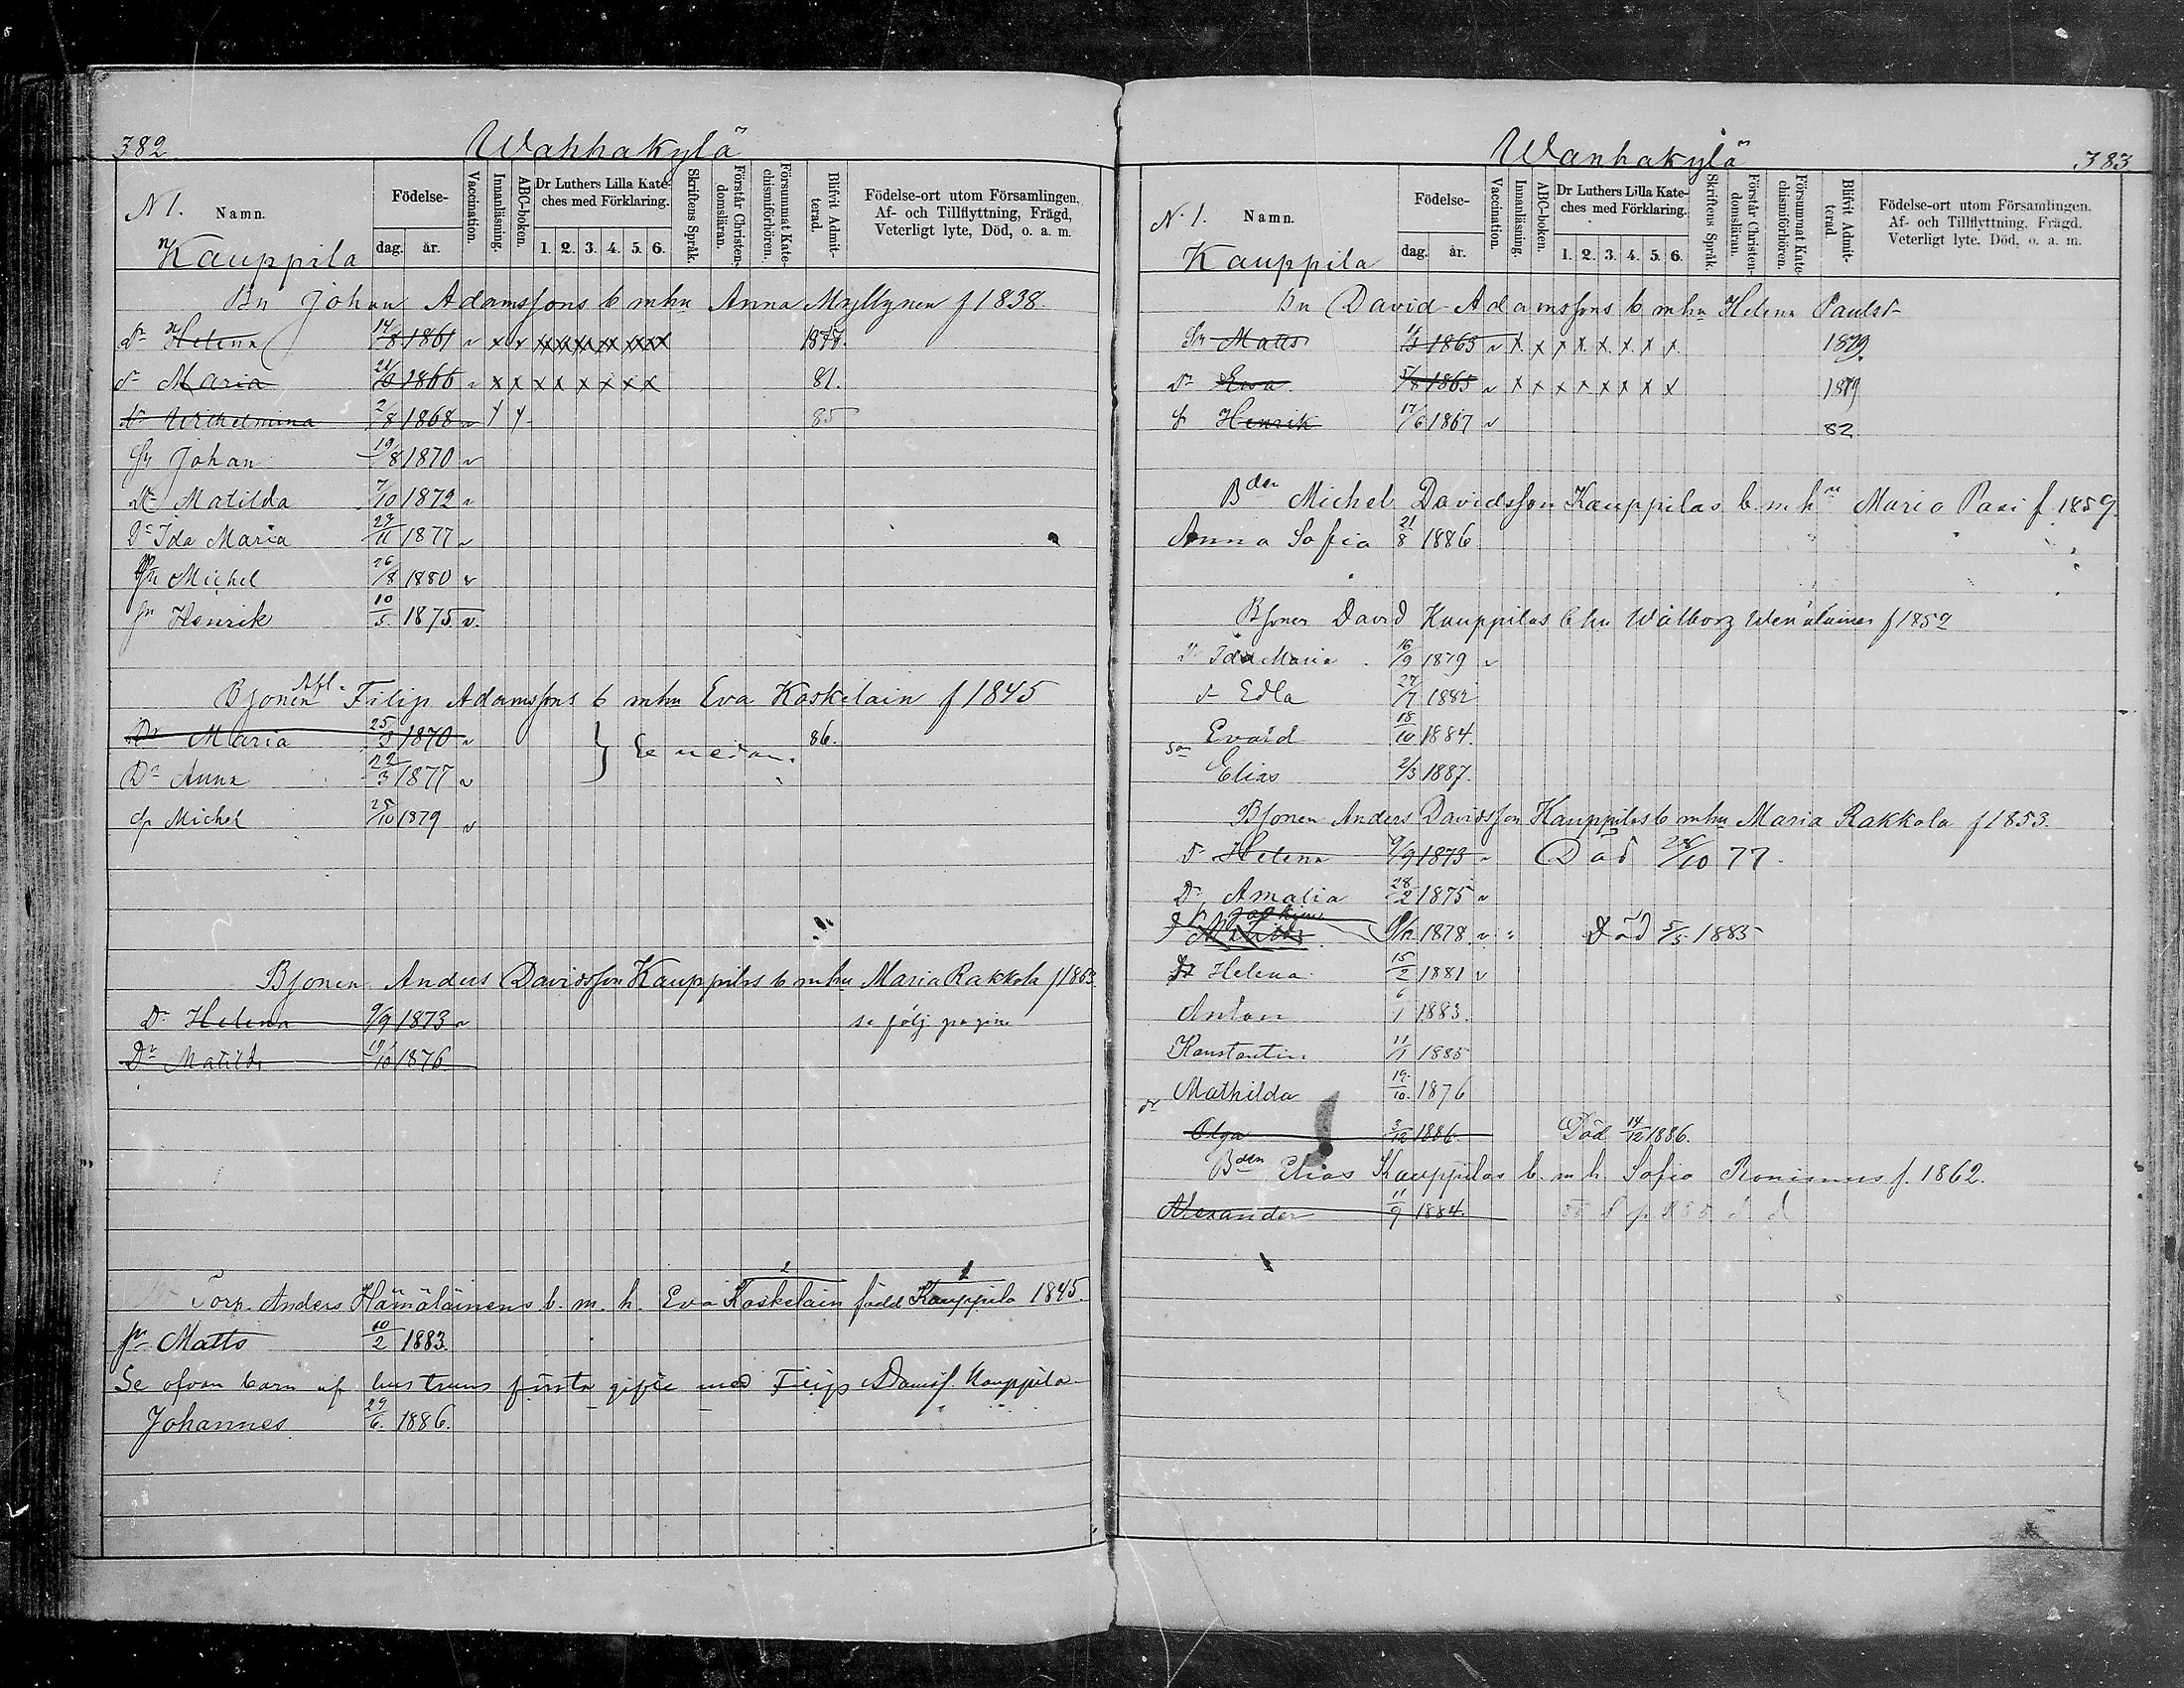 382
Wanhakylä
N 1. Namn.
Födelse-
dag. år.
Vaccination.
Innanläsning.
ABC-boken.
Dr Luthers Lilla Kate-
ches med Förklaring.
1. 2. 3. 4. 5. 6.
Skriftens Språk.
Förstår Christen-
domsläran.
Försummat Kate-
chismiförhören.
Blifvit Admit-
terad.
Födelse-ort utom Församlingen,
Af- och Tillflyttning, Frägd,
Veterligt lyte, Död, o. a. m.
Kauppila
Bn Johan Adamssons b mhu Anna Myllynen f 1838.
Dr Helena 14/8 1861 v x x x x x x x x 1877.
Dr Maria 21/6 1866 v x x x x x x x x 81.
Dr Wilhelmina 2/8 1868 v 85
Sn Johan 19/8 1870 v
Dr Matilda 7/10 1872 v
Dr Ida Maria 29/11 1877 v
Sn Michel 26/8 1880 v
Sn Henrik 10/5 1875 v.
Bsonen Afl. Filip Adamssons b mhu Eva Koskelain f 1845
Dr Maria 25/3 1870 v } Se nedan. 86.
Dr Anna 22/3 1877 v
Sn Michel 25/10 1879 v
Bsonen Anders Davidsson Kauppilas b mhu Maria Rakkola f 1853
Dr Helena 9/9 1873 v se följ pagina
Dr Matilda 19/10 1876
Torp. Anders Hämäläinens b. m. h. Eva Koskelain född Kauppila 1845.
Sn Matts 10/2 1883.
Se ofvan barn af hustruns första gifte med Filip Kauppila
Johannes 29/6. 1886.
383
Wanhakylä
N. 1. Namn.
Födelse-
dag. år.
Vaccination.
Innanläsning.
ABC-boken.
Dr Luthers Lilla Kate-
ches med Förklaring.
1. 2. 3. 4. 5. 6.
Skriftens Språk.
Förstår Christen-
domsläran.
Försummat Kate-
chismiförhören.
Blifvit Admit-
terad.
Födelse-ort utom Församlingen.
Af- och Tillflyttning. Frägd.
Veterligt lyte. Död, o. a. m.
Kauppila
Bn David Adamssons b mhu Helena Paulsd
Sn Matts 1863 v x x x x x x x x 1879.
Dr Ewa 5/8 1865 v x x x x x x x x 1879
Sn Henrik 17/6 1867 v 82
Bden Michel Davidsson Kauppilas b. m. h. Maria Pasi f. 1859.
Anna Sofia 21/8 1886
Bsonen David Kauppilas b hu Walborg Wenäläinen f 1859
Dr Ida Maria 16/9 1879 v
Dr Edla 27/7 1882
Evald 18/10 1884.
son Elias 2/3 1887.
Bsonen Anders Davidsson Kauppilas b mhu Maria Rakkola f 1853.
Dr Helena 9/9 1873 v Död 28/10 77.
Dr Amalia 28/2 1875 v
1878 v Död 5/5 1885
Dr Helena 15/2 1881 v
Anton 6/1 1883.
Konstantin 11/1 1885
dr Mathilda 19/10. 1876
Olga 3/12 1886 Död 14/12 1886.
Bden Elias Kauppilas b. m h Sofia Ronimus f. 1862.
Alexander 11/9 1884.